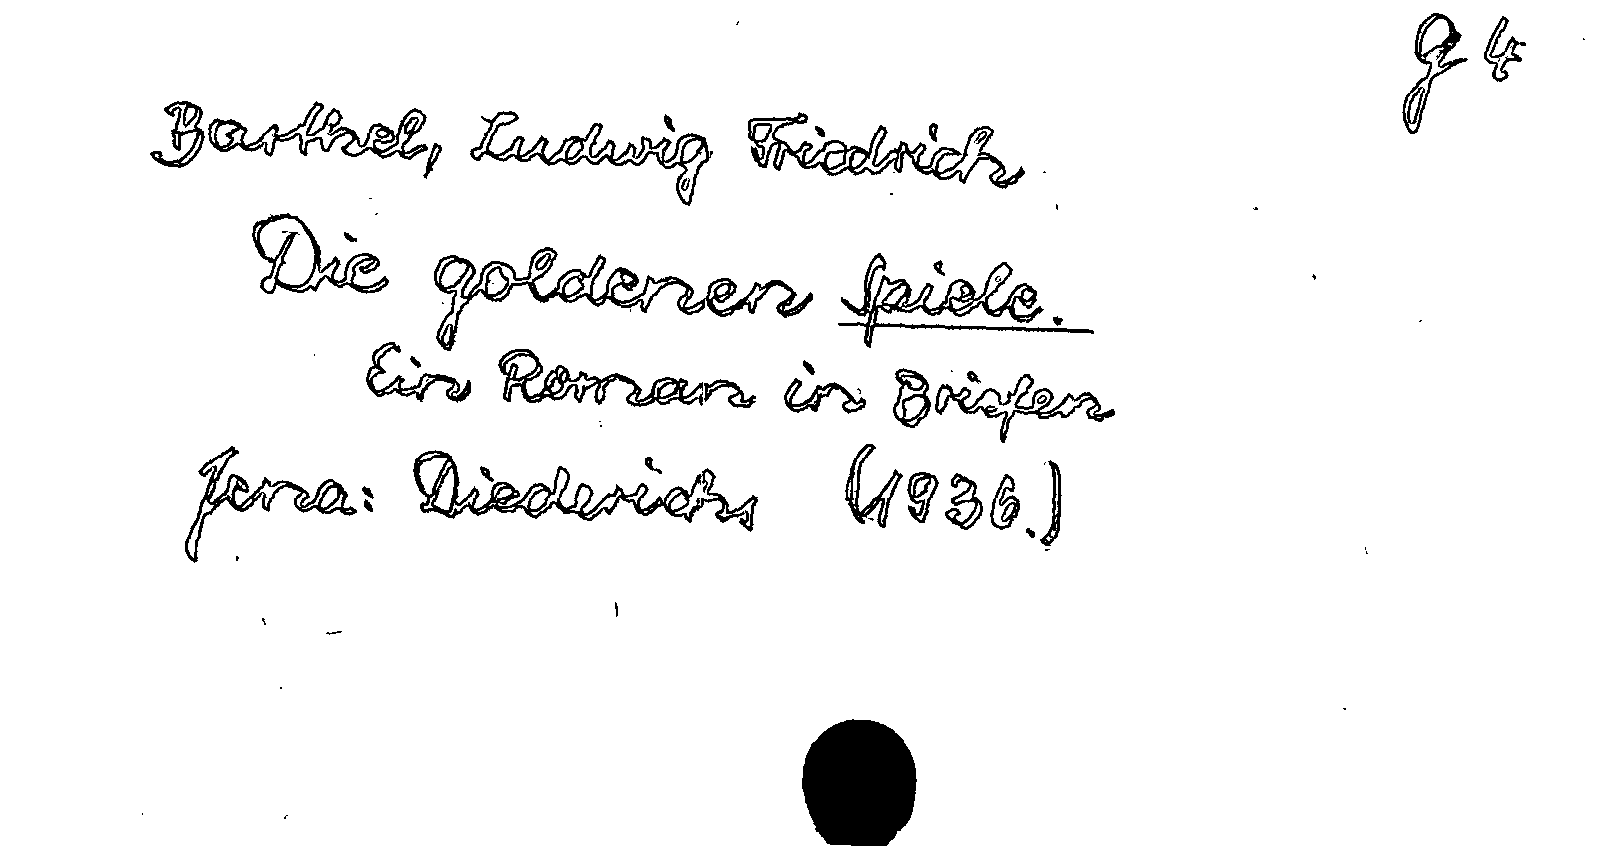 g 4
Barthel, Ludwig Friedrich
Die goldenen Spiele.
Ein Roman in Briefen
Jena: Diederichs (1936.)